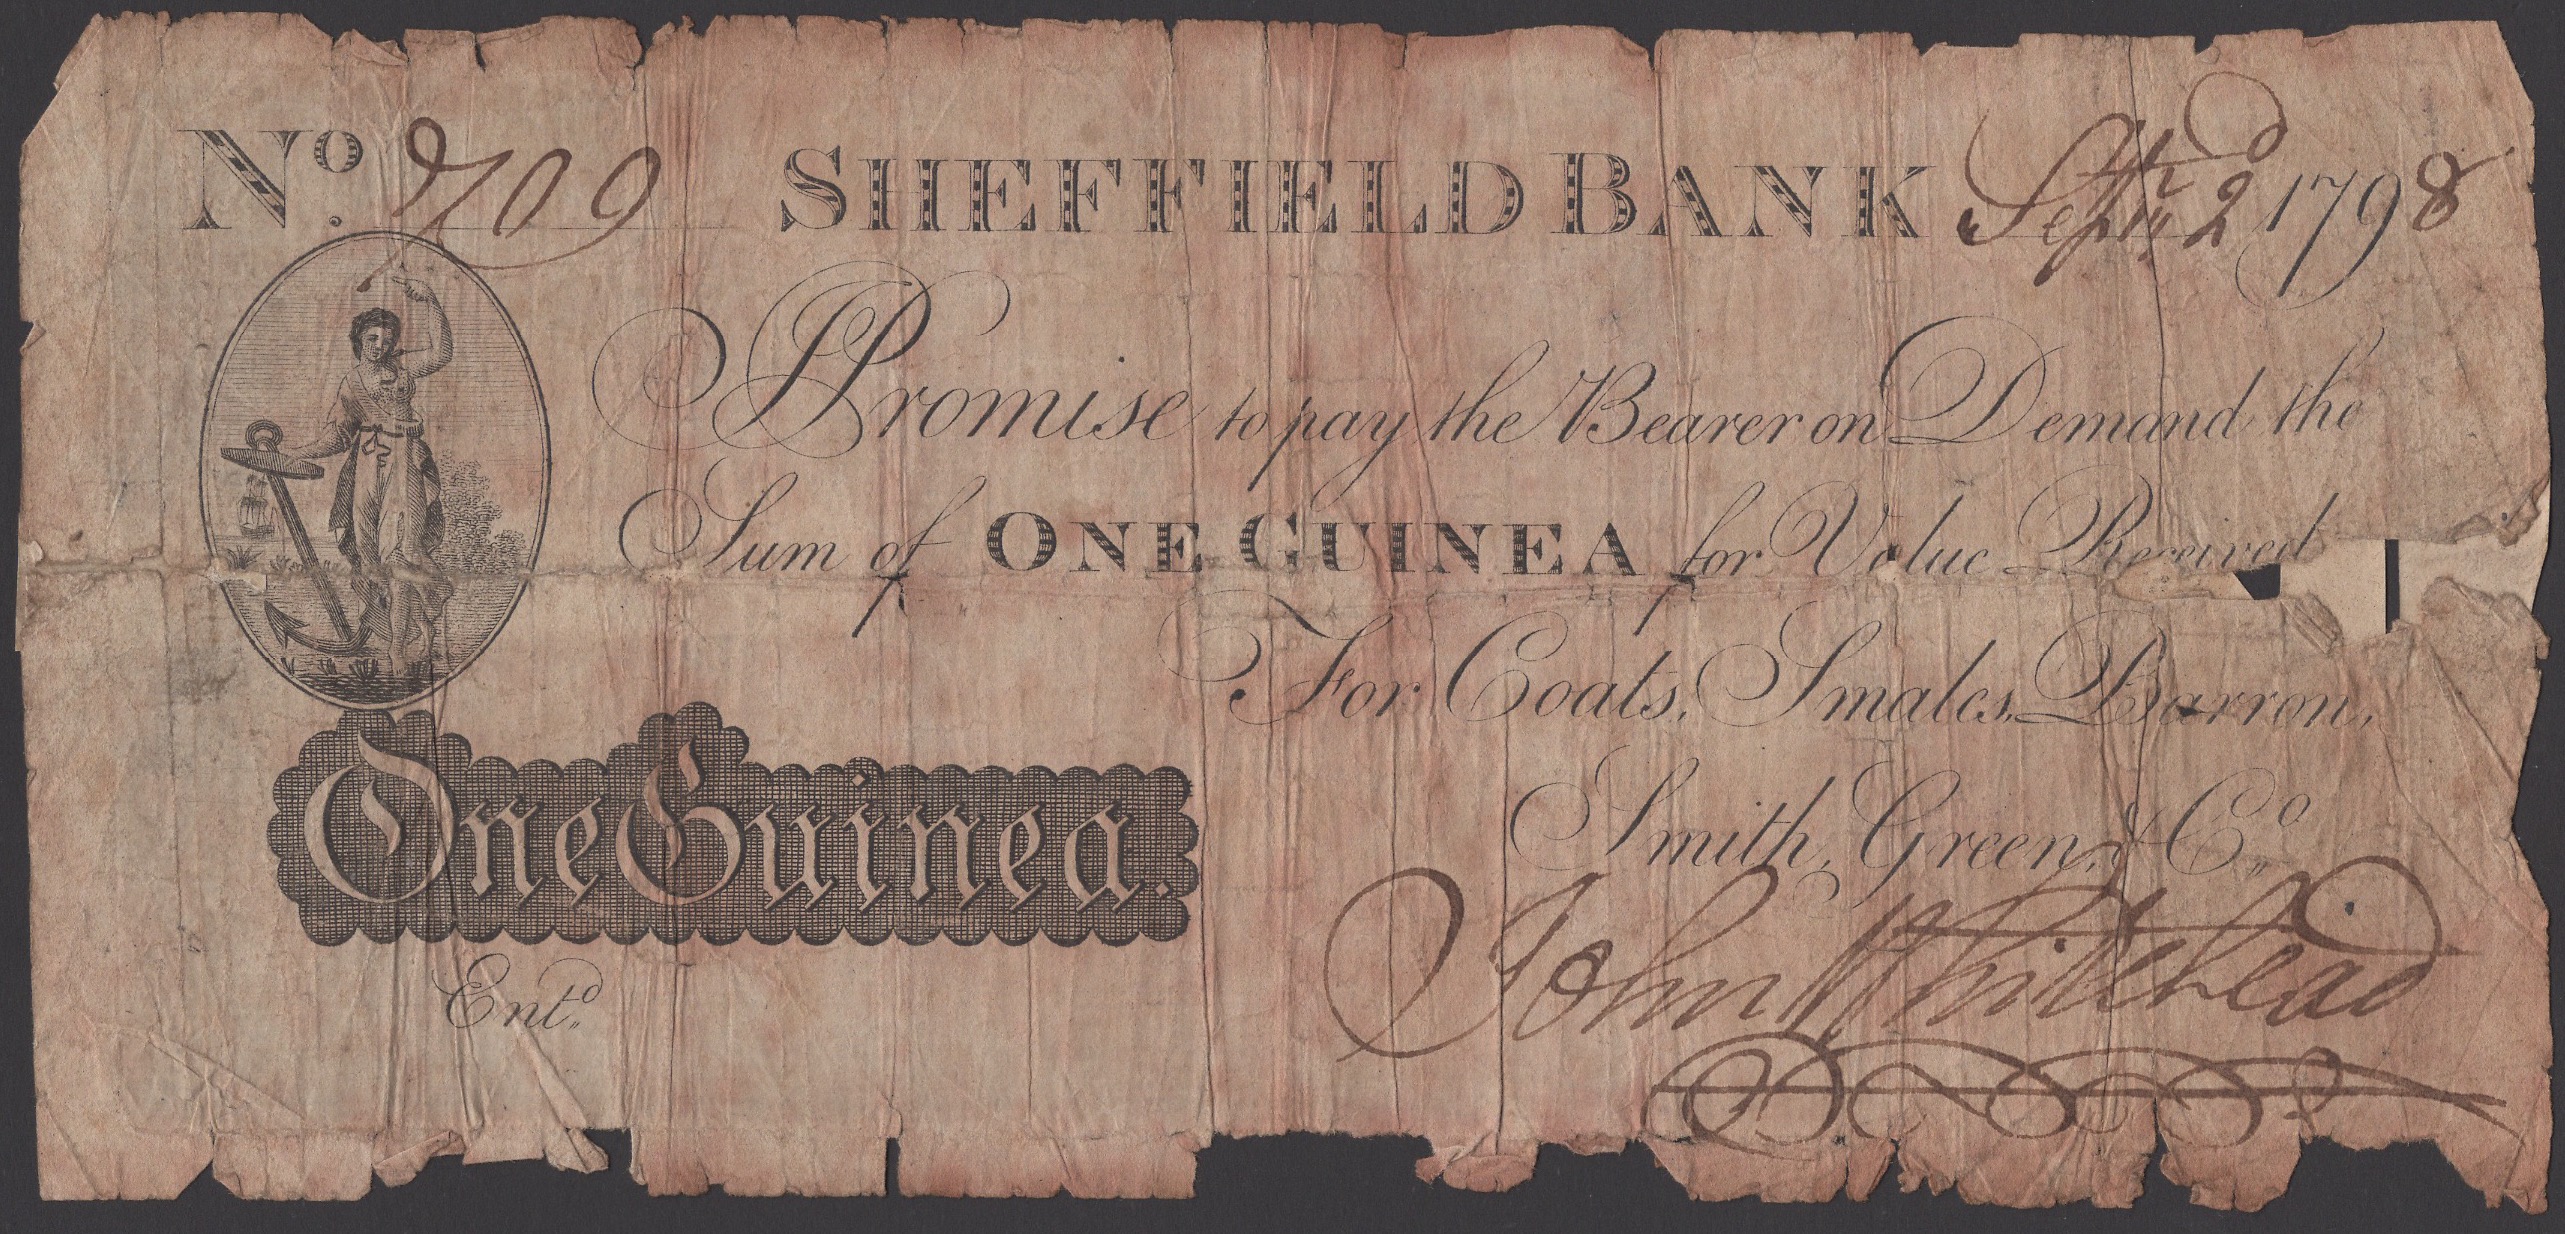 No. 709 SHEFFIELD BANK Septr. 2d 1798
I Promise to pay the Bearer on Demand the
Sum of ONE GUINEA for Value Received
For Coats, Smales, Barron,
Smith, Green, & Co.
One Guinea.
John Whitehead
Entd.